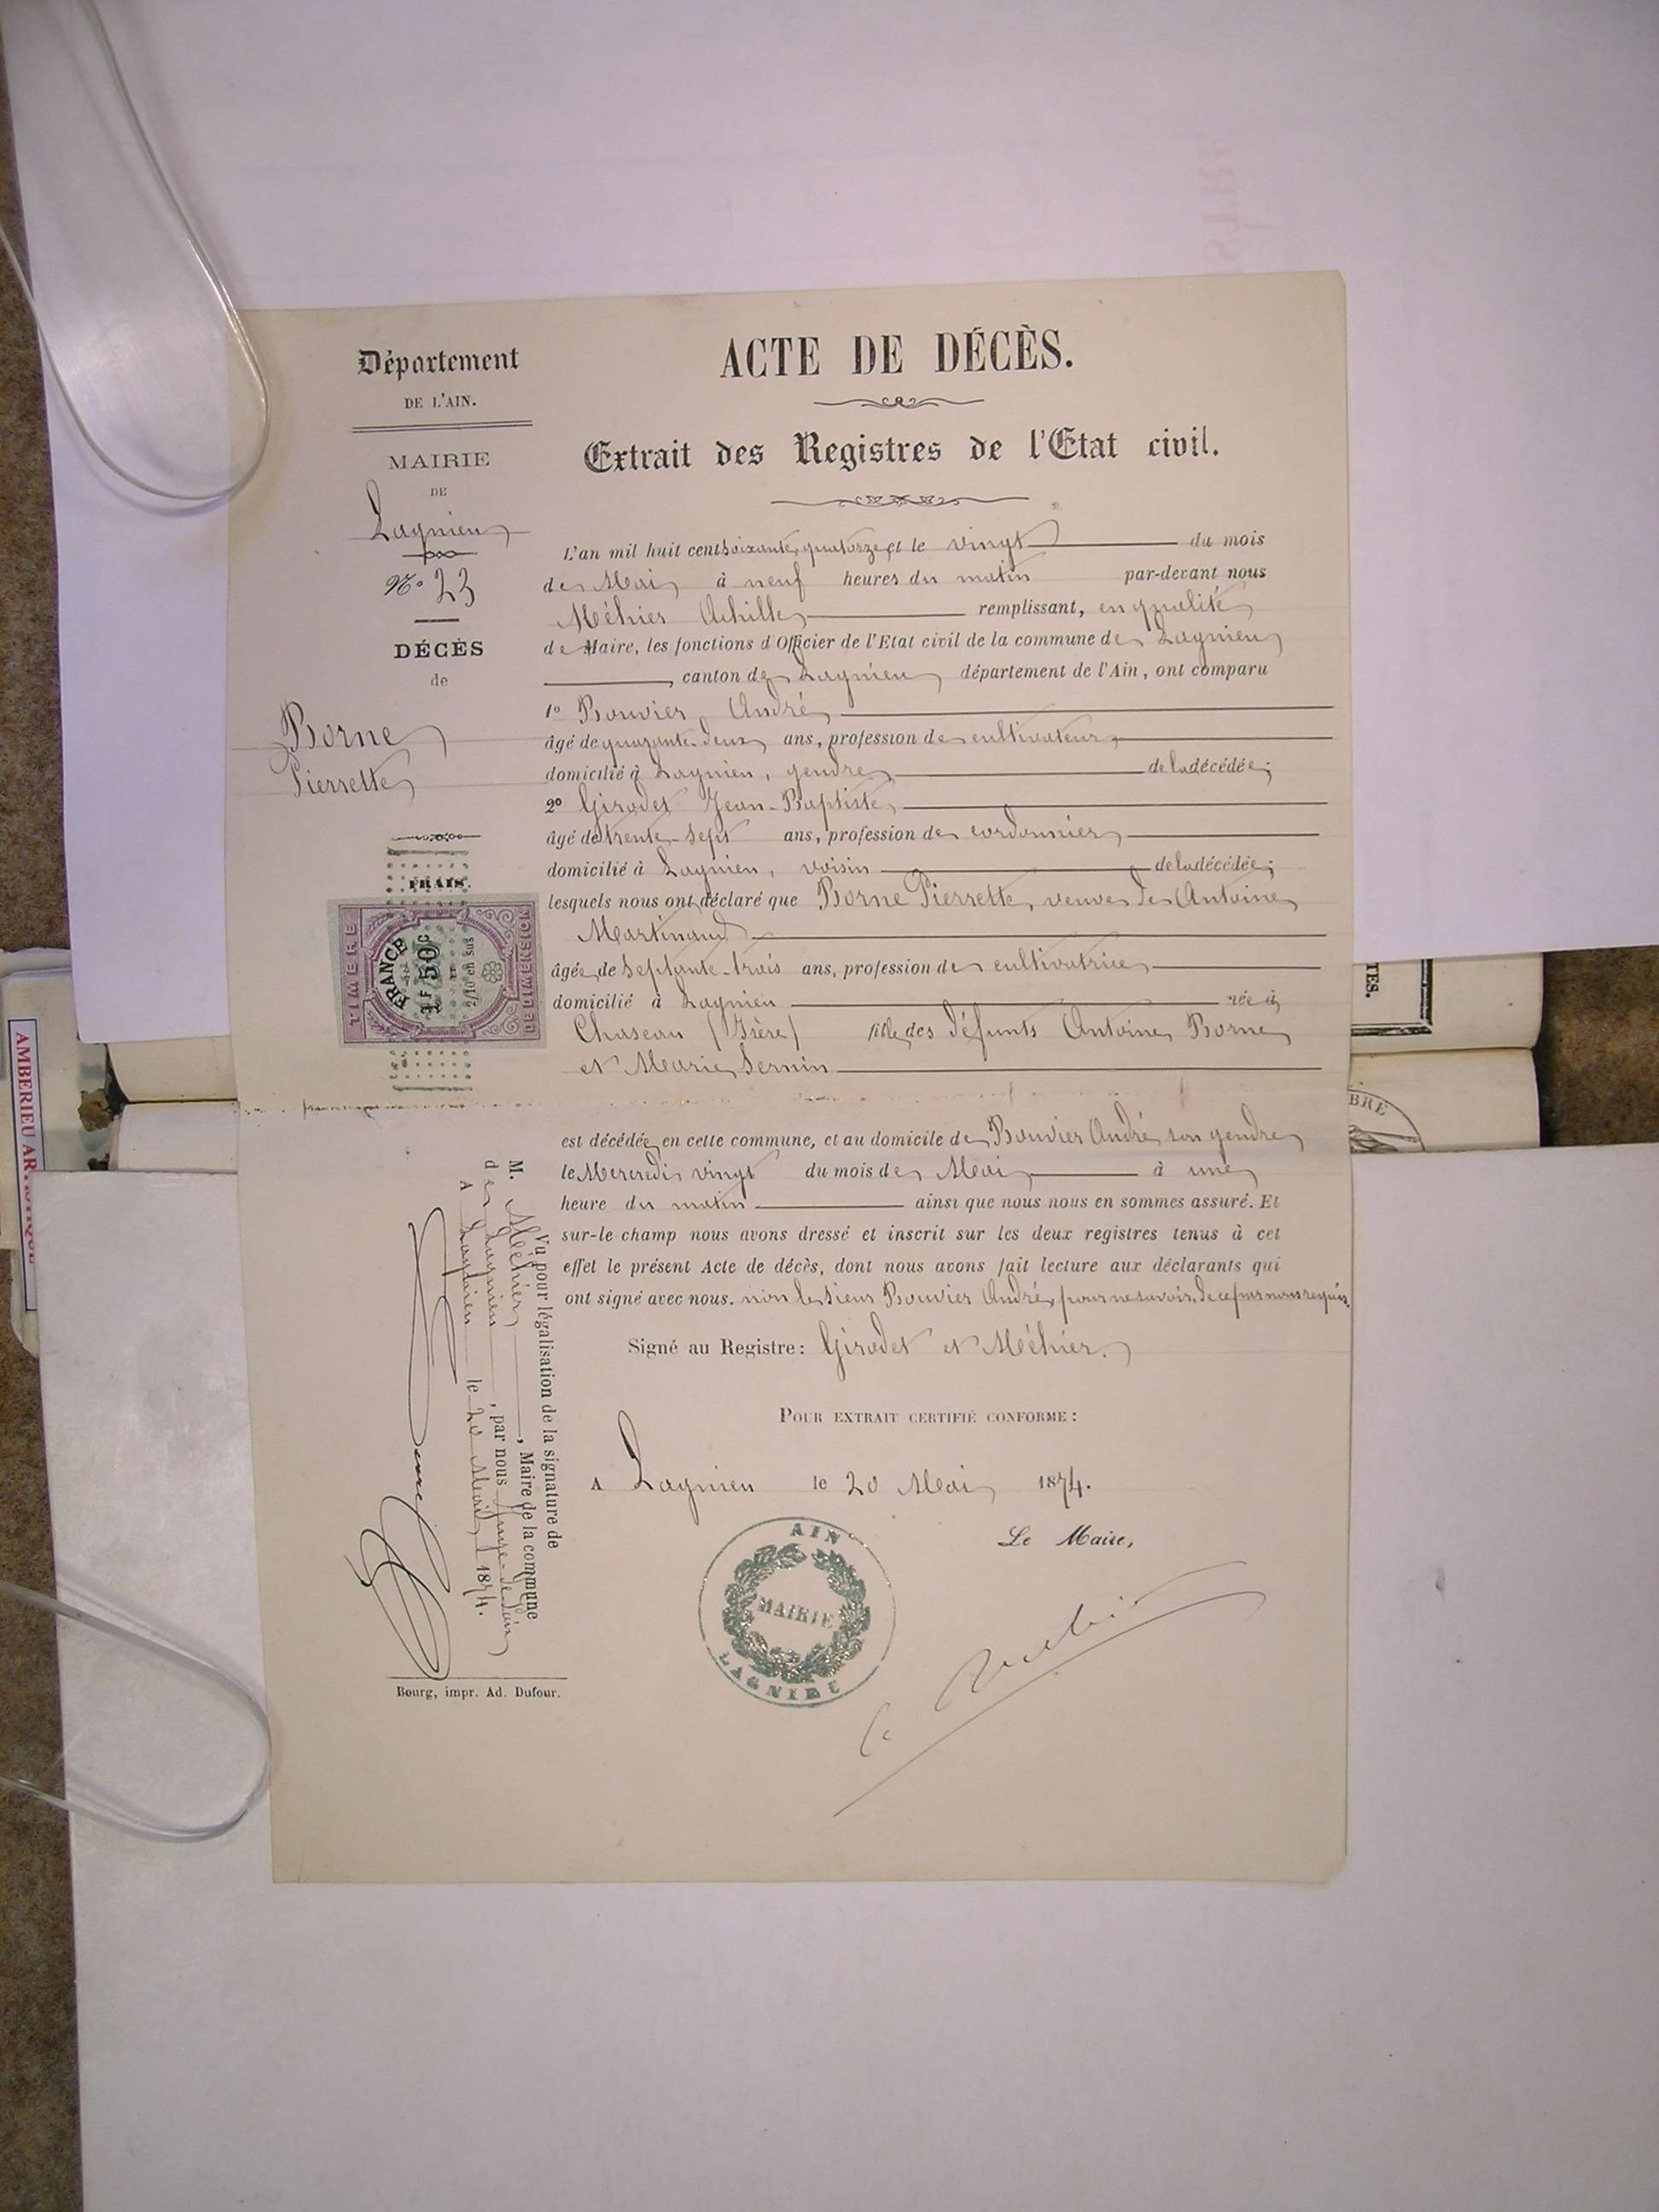 Département
DE L'AIN.
MAIRIE
DE
Lagnieu
N° 23
DÉCÈS
de
Borne
Pierrette
FRAIS.
TIMBRE
FRANCE
1F 50c
2/10 en sus
DE DIMENSION
ACTE DE DÉCÈS.
Extrait des Registres de l'Etat civil.
L'an mil huit cent soixante quatorze et le vingt du mois
de Mai à neuf heures du matin par-devant nous
Méhier Achille remplissant, en qualité
de Maire, les fonctions d'Officier de l'Etat civil de la commune de Lagnieu
, canton de Lagnieu département de l'Ain, ont comparu
1° Bouvier, André
âgé de quarante-deux ans, profession de cultivateur
domicilié à Lagnieu, gendre de la décédée;
2° Girodet Jean-Baptiste
âgé de trente-sept ans, profession de cordonnier
domicilié à Lagnieu, voisin de la décédée;
lesquels nous ont déclaré que Borne Pierrette, veuve de Antoine
Martinand
âgée de septante-trois ans, profession de cultivatrice
domicilié à Lagnieu née à
Chaseau (Isère) fille des défunts Antoine Borne
et Marie Sernin
est décédée en cette commune, et au domicile de Bouvier André son gendre
le Mercredi vingt du mois de Mai à une
heure du matin ainsi que nous nous en sommes assuré. Et
sur-le-champ nous avons dressé et inscrit sur les deux registres tenus à cet
effet le présent Acte de décès, dont nous avons fait lecture aux déclarants qui
ont signé avec nous. non le sieur Bouvier André, pour ne savoir, de ce par nous requis.
Signé au Registre: Girodet et Méhier.
POUR EXTRAIT CERTIFIÉ CONFORME:
A Lagnieu le 20 Mai 1874.
Le Maire,
AIN
MAIRIE
LAGNIEU
Vu pour légalisation de la signature de
M. Méhier, Maire de la commune
de Lagnieu, par nous Juge de paix
A Lagnieu le 20 Mai 1874.
Bourg, impr. Ad. Dufour.
AMBERIEU
TES.
BRE
STRE